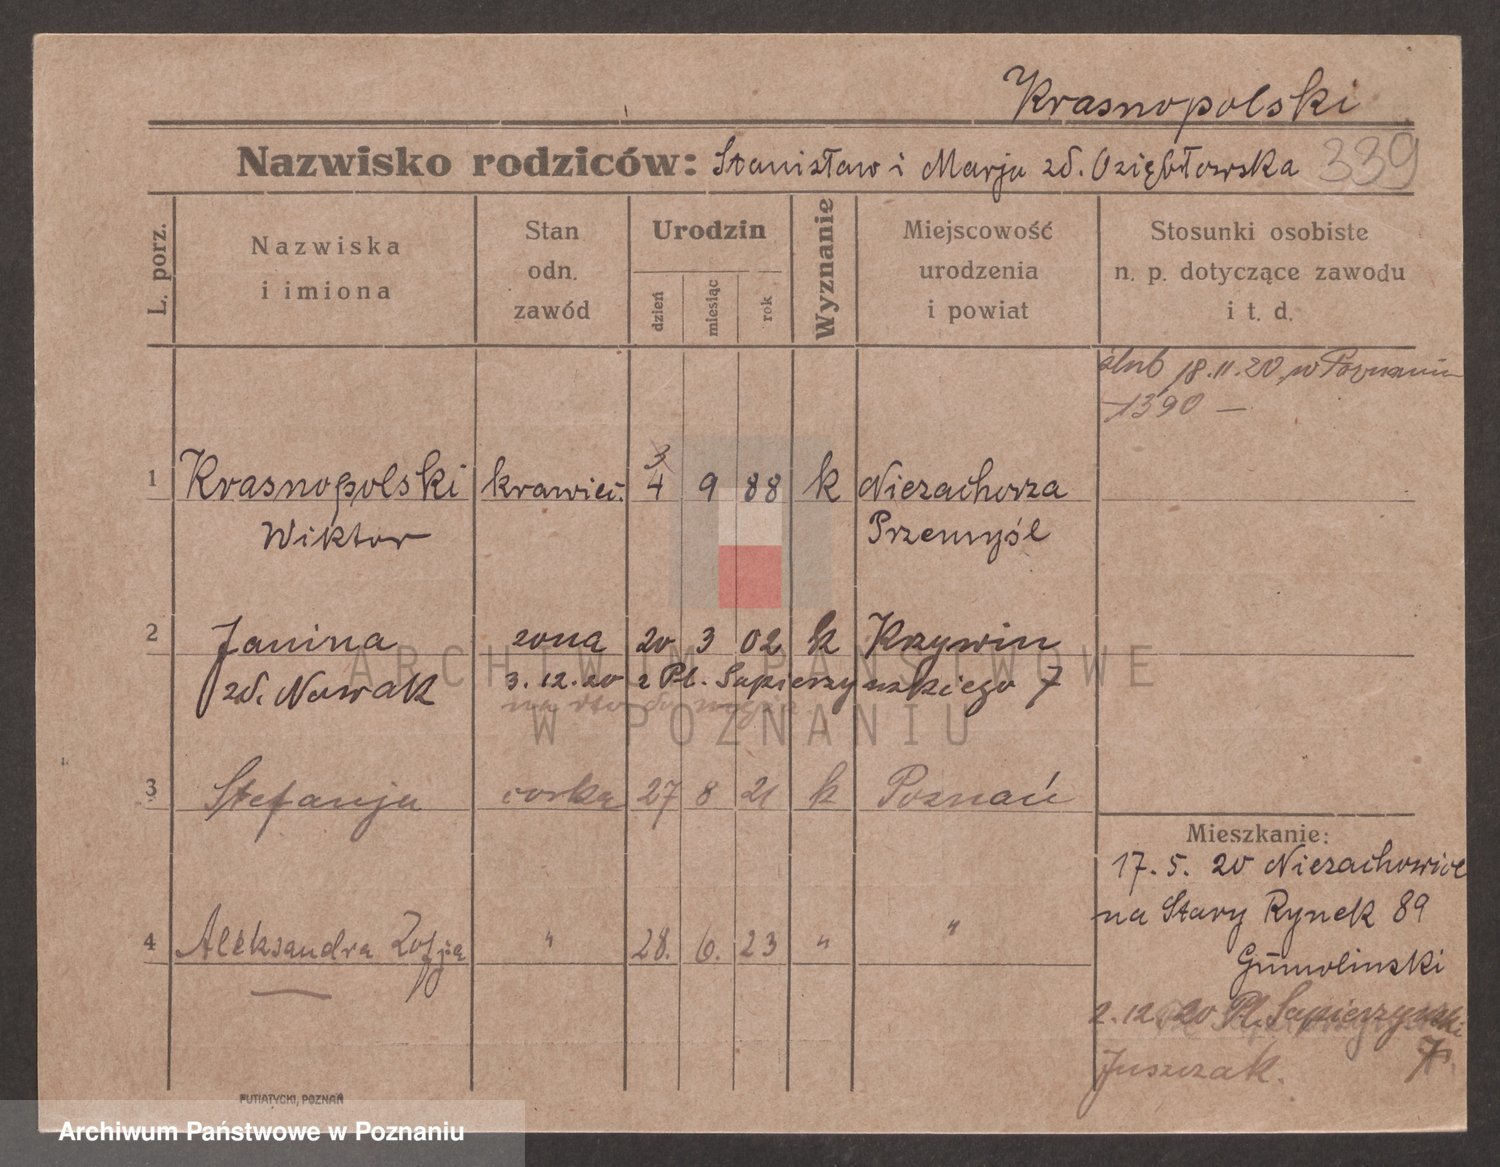 Krasnopolski
Nazwisko rodziców: Stanisław i Marja zd. Oziębłowska 339
L. porz.
Nazwiska i imiona
Stan odn. zawód
Urodzin
dzień miesiąc rok
Wyznanie
Miejscowość urodzenia i powiat
Stosunki osobiste n. p. dotyczące zawodu i t. d.
ślub 18.11.20 w Poznaniu
-1390-
1 Krasnopolski krawiec. 3 4 9 88 k Niezachorza
Wiktor Przemyśl
2 Janina żona 20 3 02 k Krzywin
zd. Nowak 3.12.20 z Pl. Sapierzyńskiego 7
3 Stefanja córka 27 8 21 k Poznań
4 Aleksandra Zofja " 28. 6. 23 " "
Mieszkanie:
17.5.20 Niezachowice
na Stary Rynek 89
Gumolinski
2.12.20 Pl. Sapierzynski
7
Juszczak.
PUTIATYCKI, POZNAŃ
ARCHIWUM PAŃSTWOWE
W POZNANIU
Archiwum Państwowe w Poznaniu